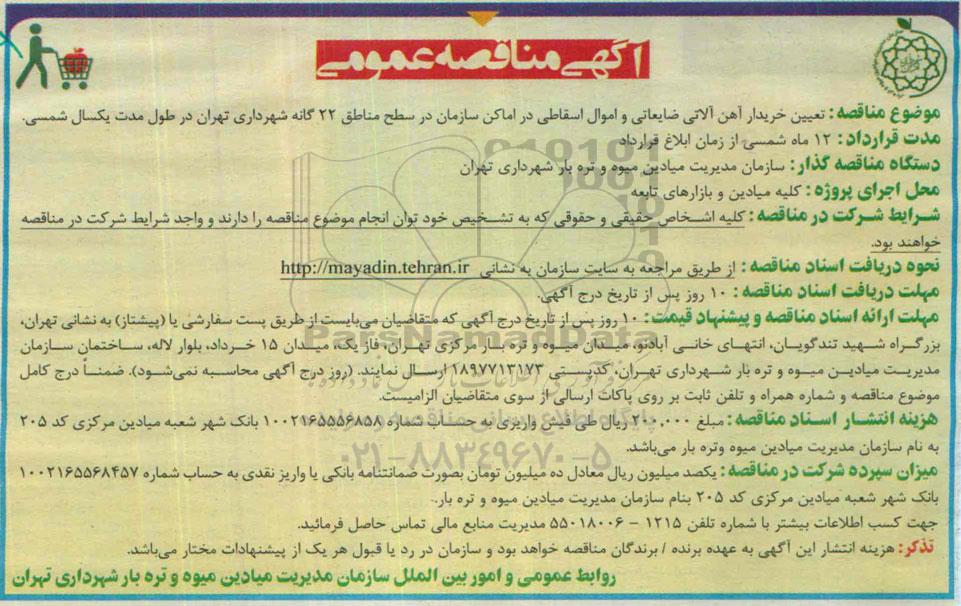 آگهی مناقصه عمومی
موضوع مناقصه : تعیین خریدار آهن آلاتی ضایعاتی و اموال اسقاطی در اماکن سازمان در سطح مناطق ۲۲ گانه شهرداری تهران در طول مدت یکسال شمسی.
مدت قرارداد : ۱۲ ماه شمسی از زمان ابلاغ قرارداد
دستگاه مناقصه گذار : سازمان مدیریت میادین میوه و تره بار شهرداری تهران
محل اجرای پروژه : کلیه میادین و بازارهای تابعه
شرایط شرکت در مناقصه : کلیه اشخاص حقیقی و حقوقی که به تشخیص خود توان انجام موضوع مناقصه را دارند و واجد شرایط شرکت در مناقصه
خواهند بود.
نحوه دریافت اسناد مناقصه : از طریق مراجعه به سایت سازمان به نشانی http://mayadin.tehran.ir
مهلت دریافت اسناد مناقصه : ۱۰ روز پس از تاریخ درج آگهی.
مهلت ارائه اسناد مناقصه و پیشنهاد قیمت : ۱۰ روز پس از تاریخ درج آگهی که متقاضیان می‌بایست از طریق پست سفارشی یا (پیشتاز) به نشانی تهران،
بزرگراه شهید تندگویان، انتهای خانی آبادنو، میدان میوه و تره بار مرکزی تهران، فاز یک، میدان ۱۵ خرداد، بلوار لاله، ساختمان سازمان
مدیریت میادین میوه و تره بار شهرداری تهران، کدپستی ۱۸۹۷۷۱۳۱۷۳ ارسال نمایند. (روز درج آگهی محاسبه نمی‌شود). ضمناً درج کامل
موضوع مناقصه و شماره همراه و تلفن ثابت بر روی پاکات ارسالی از سوی متقاضیان الزامیست.
هزینه انتشار اسناد مناقصه : مبلغ ۲۰۰,۰۰۰ ریال طی فیش واریزی به حساب شماره ۱۰۰۲۱۶۵۵۵۶۸۵۸ بانک شهر شعبه میادین مرکزی کد ۲۰۵
به نام سازمان مدیریت میادین میوه وتره بار می‌باشد.
میزان سپرده شرکت در مناقصه : یکصد میلیون ریال معادل ده میلیون تومان بصورت ضمانتنامه بانکی یا واریز نقدی به حساب شماره ۱۰۰۲۱۶۵۵۶۸۴۵۷
بانک شهر شعبه میادین مرکزی کد ۲۰۵ بنام سازمان مدیریت میادین میوه و تره بار.
جهت کسب اطلاعات بیشتر با شماره تلفن ۱۲۱۵ - ۵۵۰۱۸۰۰۶ مدیریت منابع مالی تماس حاصل فرمائید.
تذکر : هزینه انتشار این آگهی به عهده برنده / برندگان مناقصه خواهد بود و سازمان در رد یا قبول هر یک از پیشنهادات مختار می‌باشد.
روابط عمومی و امور بین الملل سازمان مدیریت میادین میوه و تره بار شهرداری تهران
ParsNamadData
۰۲۱-۸۸۳۴۹۶۷۰-۵